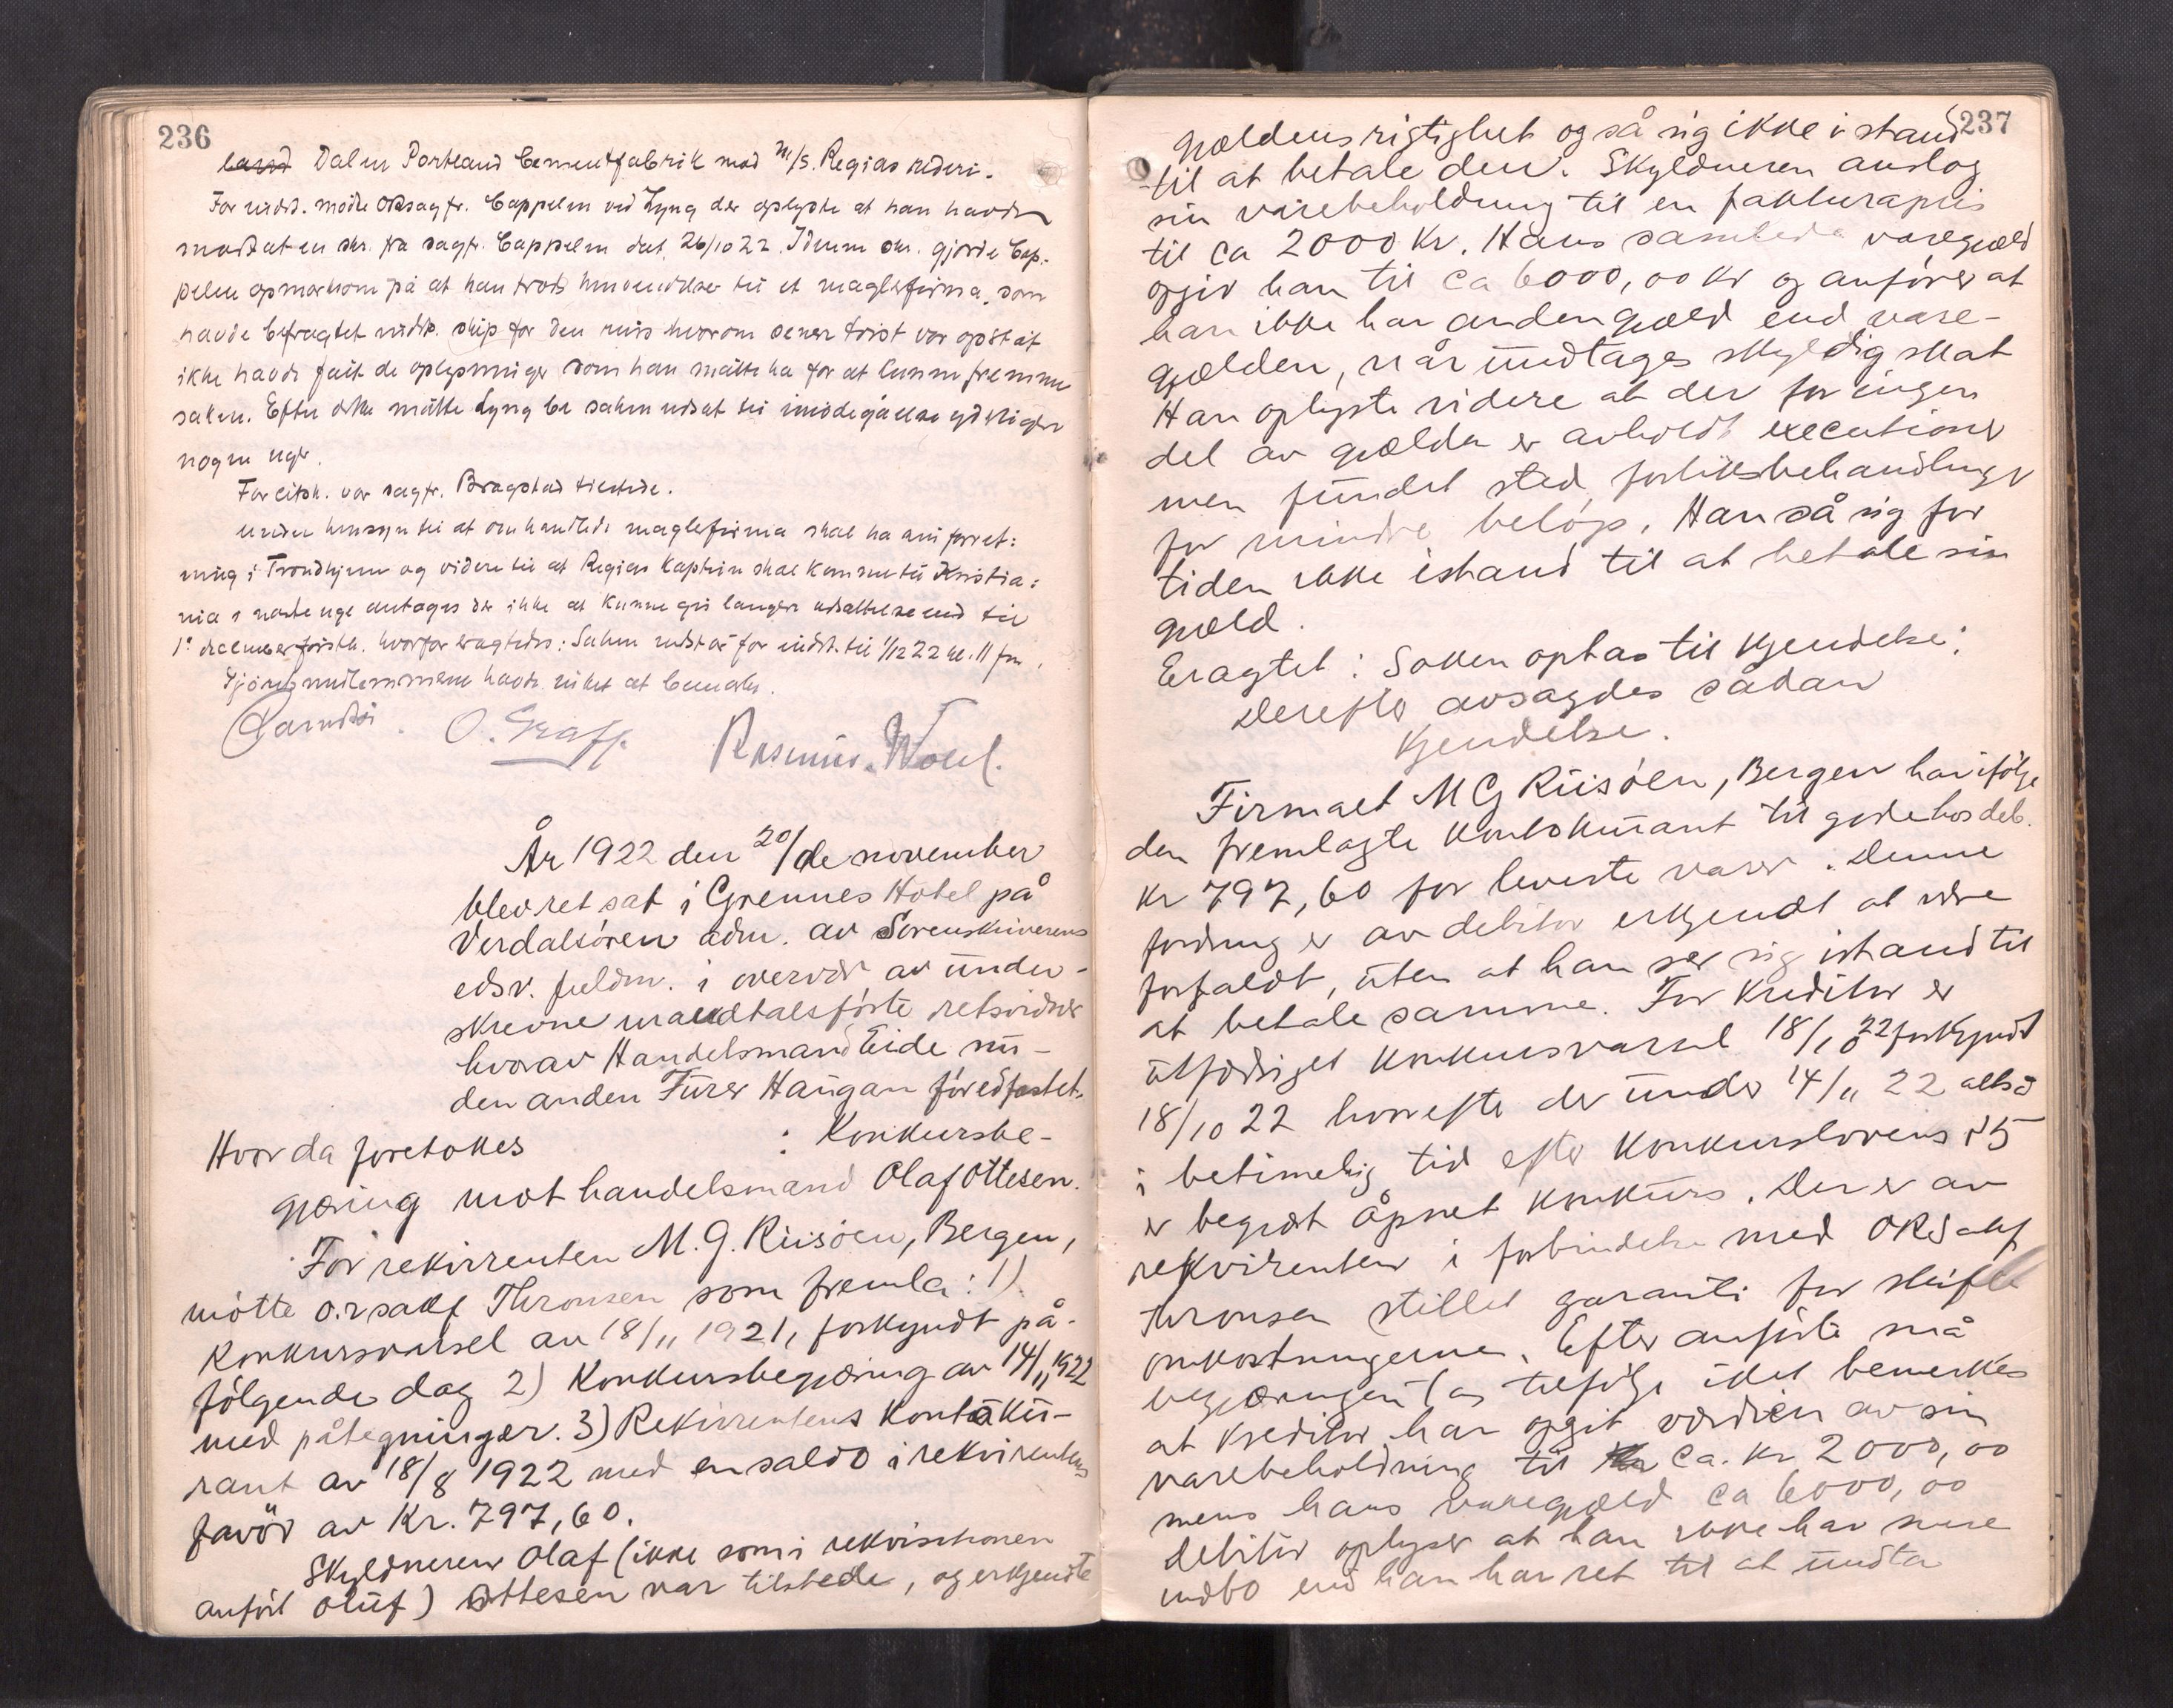 236
Dalen Portland Cementfabrik mod M/S. Regias rederi.
For indst. mötte ORsagfr. Cappelen ved Lyng der oplyste at han havde
mottat en skr. fra sagfr. Cappelen dat. 26/10 22. I denne skr. gjorde Cap-
pelen opmerksom på at han trods henvendelser til et meglerfirma, som
havde befragtet skip for den reise hvorom senere tvist var opståt
ikke havde fåit de oplysninger som han måtte ha for at kunne fremme
saken. Efter dette måtte Lyng be saken utsat til imödegåelse yderligere
nogen uger.
For citsk. var sagfr. Bragstad tilstede.
Under hensyn til at omhandlede meglerfirma skal ha sin forret:
ning i Trondhjem og videre til at Regias kaptein skal komme til Kristia:
nia i neste uge antages der ikke at kunne gis længere utsættelse end til
1ste december förstk. hvorfor eragtedes: Saken utstår for indst. til 1/12 22 kl. 11 fm.
Sjöretsmedlemmene havde intet at bemerke.
O. Graff. Rasmus Wold.
År 1922 den 20/de november
blev ret sat i Grennes Hotel på
Verdalsören adm. av Sorenskriverens
edsv. fuldm. i overvær av under-
skrevne mandtalsförte retsvidner
hvorav Handelsmand Eide mu-
den anden Furer Haugan för edfæstet.
Hvor da foretokes : Konkursbe-
gjæring mot handelsmand Olaf Ottesen.
For rekvirenten M. G. Riisöen, Bergen,
mötte o.r.sakf Thronsen som fremla: 1)
Konkursvarsel av 18/11 1921, forkyndt på-
fölgende dag 2) Konkursbegjæring av 14/11 1922
med påtegninger. 3) Rekvirentens Kontoku-
rant av 18/8 1922 med en saldo i rekvirentens
favör av Kr. 797,60.
Skyldneren Olaf (ikke som i rekvisitionen
anfört Oluf) Ottesen var tilstede, og erkjendte
237
gjældens rigtighet og så sig ikke i stand
til at betale den. Skyldneren anslog
sin varebeholdning til en fakturapris
til ca 2000 Kr. Hans samlede varegjæld
opgir han til ca 6000,00 Kr og anförer at
han ikke har anden gjæld end vare-
gjælden, når undtages skyldig skat
Han oplyste videre at der for ingen
del av gjælden er avholdt executioner
men fundet sted forliksbehandlinger
for mindre belöp. Han så sig for
tiden ikke istand til at betale sin
gjæld.
Eragtet: Saken optas til kjendelse;
Derefter avsagdes sådan
Kjendelse.
Firmaet M G Riisöen, Bergen har ifölge
den fremlagte Kontokurant til gode hos deb.
Kr 797,60 for leverte varer. Denne
fordring er av debitor erkjendt at være
forfaldt, uten at han ser sig istand til
at betale samme. For Kreditor er
utfærdiget Konkursvarsel 18/10 22 forkyndt
18/10 22 hvorefter der under 14/11 22 altså
i betimelig tid efter Konkurslovens § 5
er begjært åpnet Konkurs. Der er av
rekvirenten i forbindelse med ORSakf
Thronsen stillet garanti for skifte
omkostningerne. Efter anförte må
begjæringen tas tilfölge idet bemerkes
at Kreditor har opgit værdien av sin
varebeholdning til ca. Kr 2000,00
mens hans varegjæld ca 6000,00
Debitor oplyser at han ikke har mere
indbo end han har ret til at undta